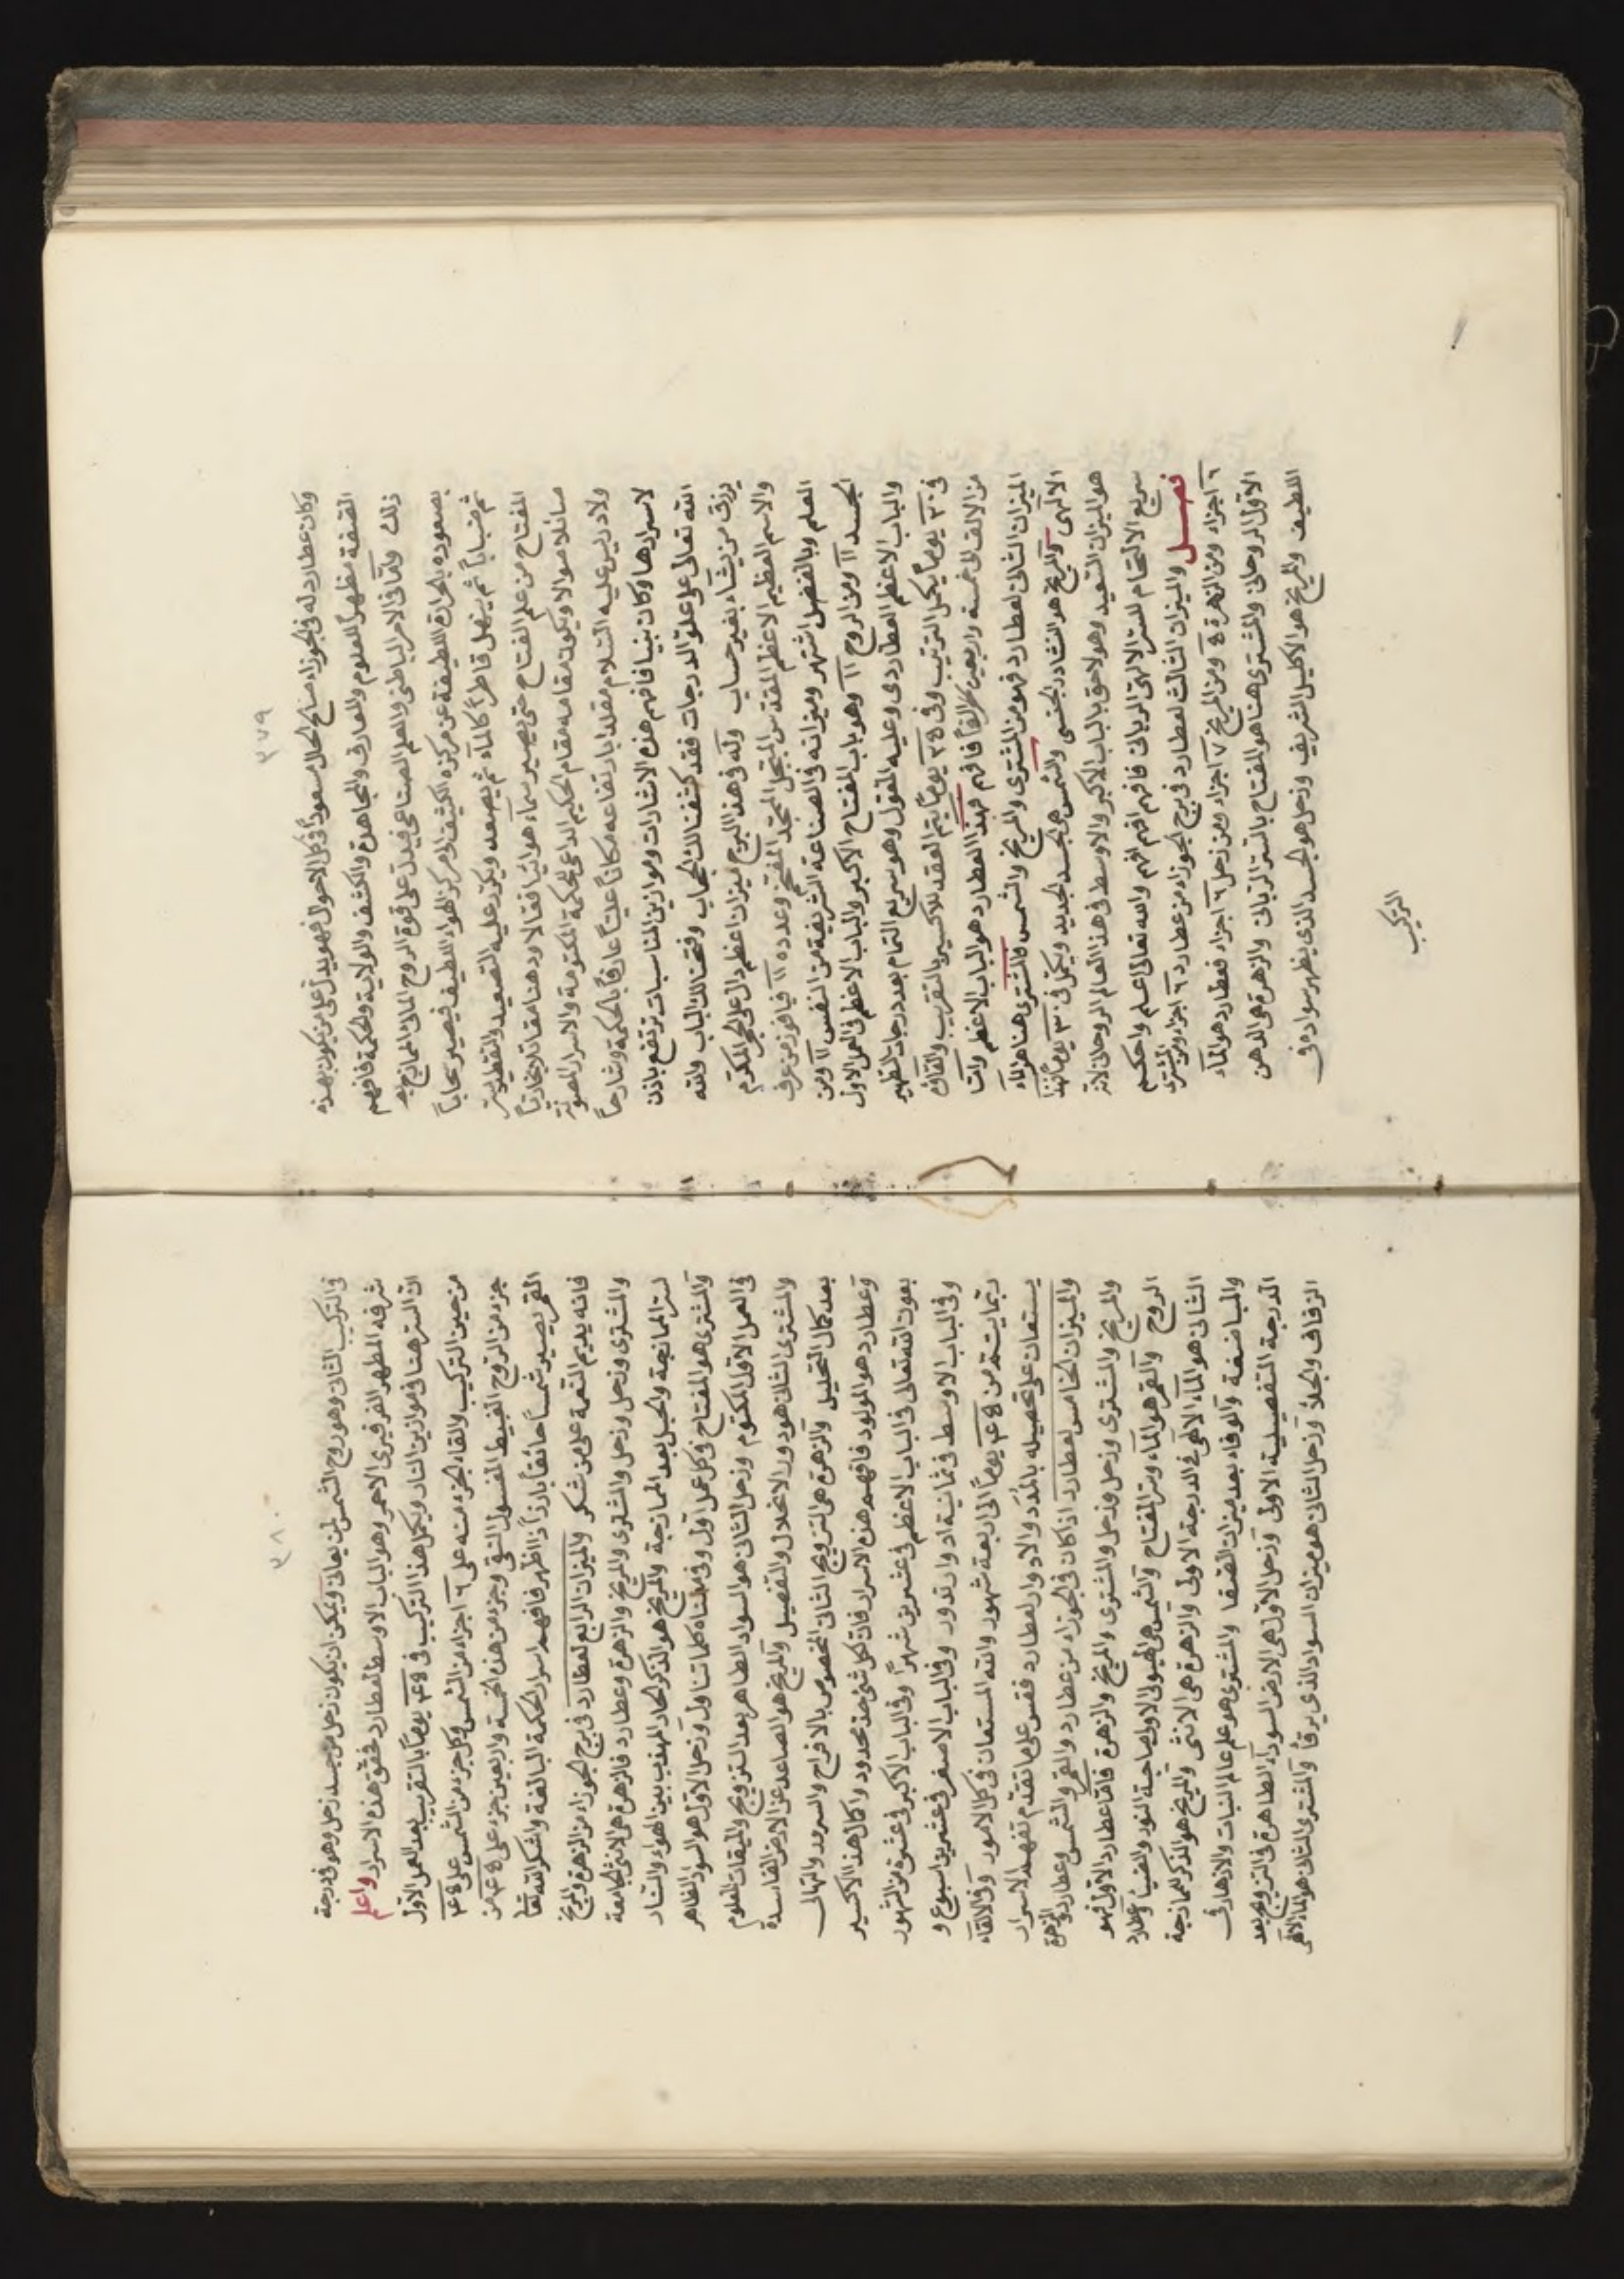 ٣٧٩
وكان عطارد له في الجوزاء صالح الحال مسعوداً في كل الاحوال فهو يدل على من يكون بهذه
الصفة مظهراً للعلوم والمعارف والمجاهدة والكشف والولاية والحكمة فافهم
ذلك واما في الامر الباطن والعلم الصناعي فيدل على قوة الروح المائي الممازج
بصعوده بالحرارة اللطيفة عن مركزه الكثيف الى مركز الهواء اللطيف فيصير بخاراً
ثم ضباباً ثم ينهل قاطراً كالماء ثم يصعد ويكرر عليه التصعيد والتقطير
المفتاح من علم الفتاح حتى يصير سماء هوائيا فعالا ودهنا
صائلا ويكون مقامه مقام الحكيم الداعي للحكمة المكتومة والاسرار المصونة
ولادريس عليه السلام مقلدا بارتفاعه مكاناً علياً عارفاً بالحكمة وشارحاً
لاسرارها وكان نبيا فافهم هذه الاشارات وموازين المناسبات ترتفع باذن
الله تعالى على علو الدرجات فقد كشفنا لك الحجاب وفتحنا لك الباب والله
يرزق من يشاء بغير حساب وله في هذا البرج ميزان اعظم دال على الحجر المكرم
والاسم العظيم الاعظم المقدس المبجل المفخم وعدده ١١ فيا فوز من عرف
العلم وبالفضل اشتهر وميزانه في الصناعة الشريفة من النفس ١١ ومن
الجسد ١١ ومن الروح ١١ وهو باب المفتاح الاكبر والباب الاعظم في العمل الاول
والباب الاعظم العطاردي وعليه المقول وهو سريع التمام بعد درجات التطهير
في ٣٠ يوماً يكمل الترتيب وفي ٣٥ يوماً يتم العقد للاكسير بالتقريب والقاؤه
من الالف الى خمسة واربعين الفاً فافهم فهذا العطارد هو الباب الاعظم واما
الميزان الثاني لعطارد فهو من المشتري والمريخ والشمس فالمشتري هنا هو الماء
الالهي والمريخ هو النشادر الجنسي والشمس هي الجسد الجديد ويكمل في ٣٠ يوماً فهذا
هو الميزان السعيد وهو لاحق بالباب الاكبر والاوسط في هذا العالم الروحاني لانه
سريع الالتحام للسر الالهي الرباني فافهم افهم افهم والله تعالى اعلم واحكم
فصل والميزان الثالث لعطارد في برج الجوزاء من عطارد ٦ اجزاء ومن المشتري
٦ اجزاء ومن الزهرة ٥ ومن المريخ ٧ اجزاء ومن زحل ٦ اجزاء فعطارد هو الماء
الاول الروحاني والمشتري هنا هو المفتاح بالسر الرباني والزهرة هي الدهن
اللطيف والمريخ هو الاكليل الشريف وزحل هو الجسد الذي يظهر سواده في
التركيب
٣٨٠
في التركيب الثاني وهو روح الشمس لمن يعاني ويمكن ان يكون زحل من جسد زحل وهو في درجة
شرفه المطهر الفرفيري الاحمر وهو الباب الاوسط لعطارد فحقق هذه الاسرار واعلم
ان السر هنا في موازين النار ويكمل هذا التركيب في ٤٥ يوماً بالتقريب بعد العمل الاول
من حين التركيب والقاء الجزء منه على ٦ اجزاء من الشمس وكل جزء من الشمس على ٤٥
جزء من الروح الغبيط المغسول النقي وجزء من هذه الخمسة واربعين جزء على ٤٥ من
القمر يصير شمساً حائقاً بارزاً ذا اظهر فافهم اسرار الحكمة البالغة واشكر الله تعالى
فانه يديم النعمة على من شكر والميزان الرابع لعطارد في برج الجوزاء من الزهرة والمريخ
والمشتري وزحل وزحل والمشتري والمريخ والزهرة وعطارد فالزهرة هي الانثى الجامعة
لسر الممازجة والحبل بعد الممازجة والمريخ هو الذكر الحاد المهذب بين الهواء والنار
والمشتري هو المفتاح في كل عمل اول وفي مبناه كلماتنا اول وزحل الاول هو السواد الظاهر
في العمل الاول المكتوم وزحل الثاني هو السواد الطاهر بعد التزويج والميقات المعلوم
والمشتري الثاني هو دور الانحلال والتفصيل والمريخ هو الصاعد عن الارض الفاسدة
بعد كمال التحليل والزهرة هي التزويج الثاني المخصوص بالافراح والسرور والتهاني
وعطارد هو المولود فافهم هذه الاسرار فان لكل شيء حد محدود واكمال هذا الاكسير
بعون الله تعالى في الباب الاعظم في عشرين شهراً وفي الباب الاكبر في عشرة من الشهور
وفي الباب الاوسط في ثمانية ادوار تدور وفي الباب الاصغر في عشرين اسبوع و
ربما يستتم من ٤٥ يوماً الى اربعة شهور والله المستعان في كل الامور وفي الالقاء
يستعان على تحصيله بالمدد والادوار لعطارد فقس على ما تقدم تفهم الاسرار
والميزان الخامس لعطارد اذا كان في الجوزاء من عطارد والقمر والشمس وعطارد والزهرة
والمريخ والمشتري وزحل وزحل والمشتري والمريخ والزهرة فاما عطارد الاول فهو
الروح والقمر هو الماء وسر المفتاح والشمس هي الهيولي الاولى صاحبة النور والضياء وعطارد
الثاني هو الماء الالهي في الدرجة الاولى والزهرة هي الانثى والمريخ هو الذكر لممازجة
والمباضعة والوفاء بعد ميزان الصفا والمشتري هو علم عالم النبات والازهار في
الدرجة التفصيلية الاولى وزحل الاول هي الارض السوداء الطاهرة في التزويج بعد
الزفاف والجلاء وزحل الثاني هو ميزان السواد الذي يرقا والمشتري الثاني هو الماء الالهي